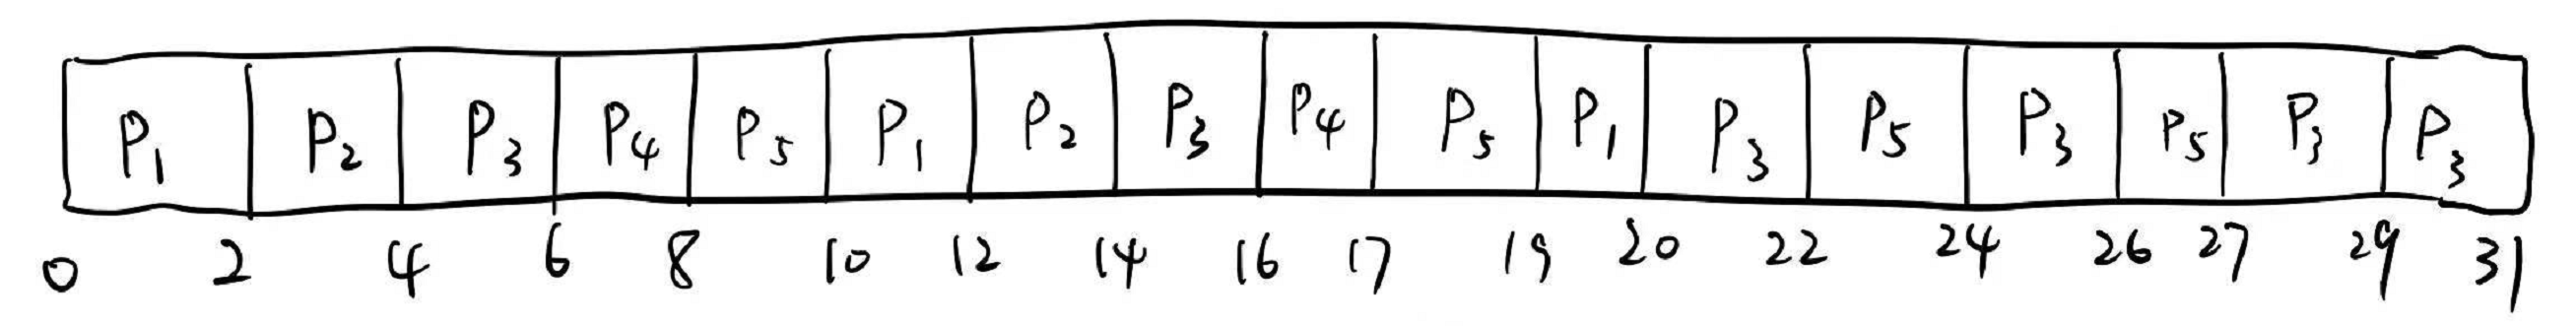 P₁ P₂ P₃ P₄ P₅ P₁ P₂ P₃ P₄ P₅ P₁ P₃ P₅ P₃ P₅ P₃ P₃
0 2 4 6 8 10 12 14 16 17 19 20 22 24 26 27 29 31